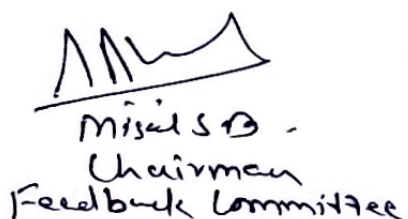 Misal S B.
Chairman
Feedback Committee